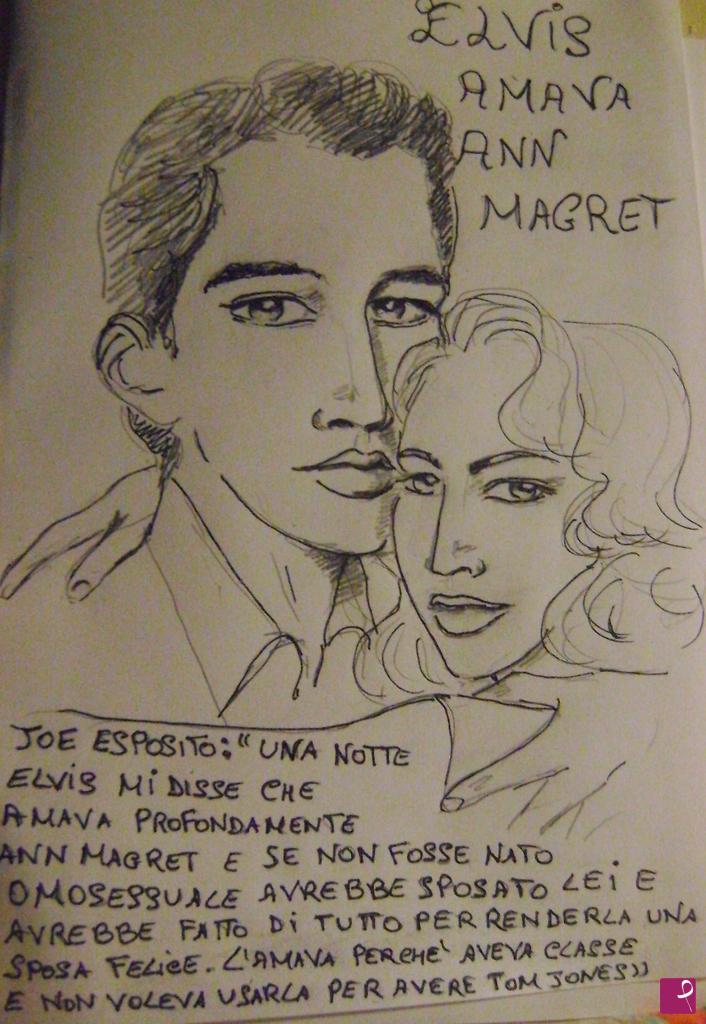 ELVIS
AMAVA
ANN
MAGRET
JOE ESPOSITO: "UNA NOTTE
ELVIS MI DISSE CHE
AMAVA PROFONDAMENTE
ANN MAGRET E SE NON FOSSE NATO
OMOSESSUALE AVREBBE SPOSATO LEI E
AVREBBE FATTO DI TUTTO PER RENDERLA UNA
SPOSA FELICE. L'AMAVA PERCHE' AVEVA CLASSE
E NON VOLEVA USARLA PER AVERE TOM JONES))